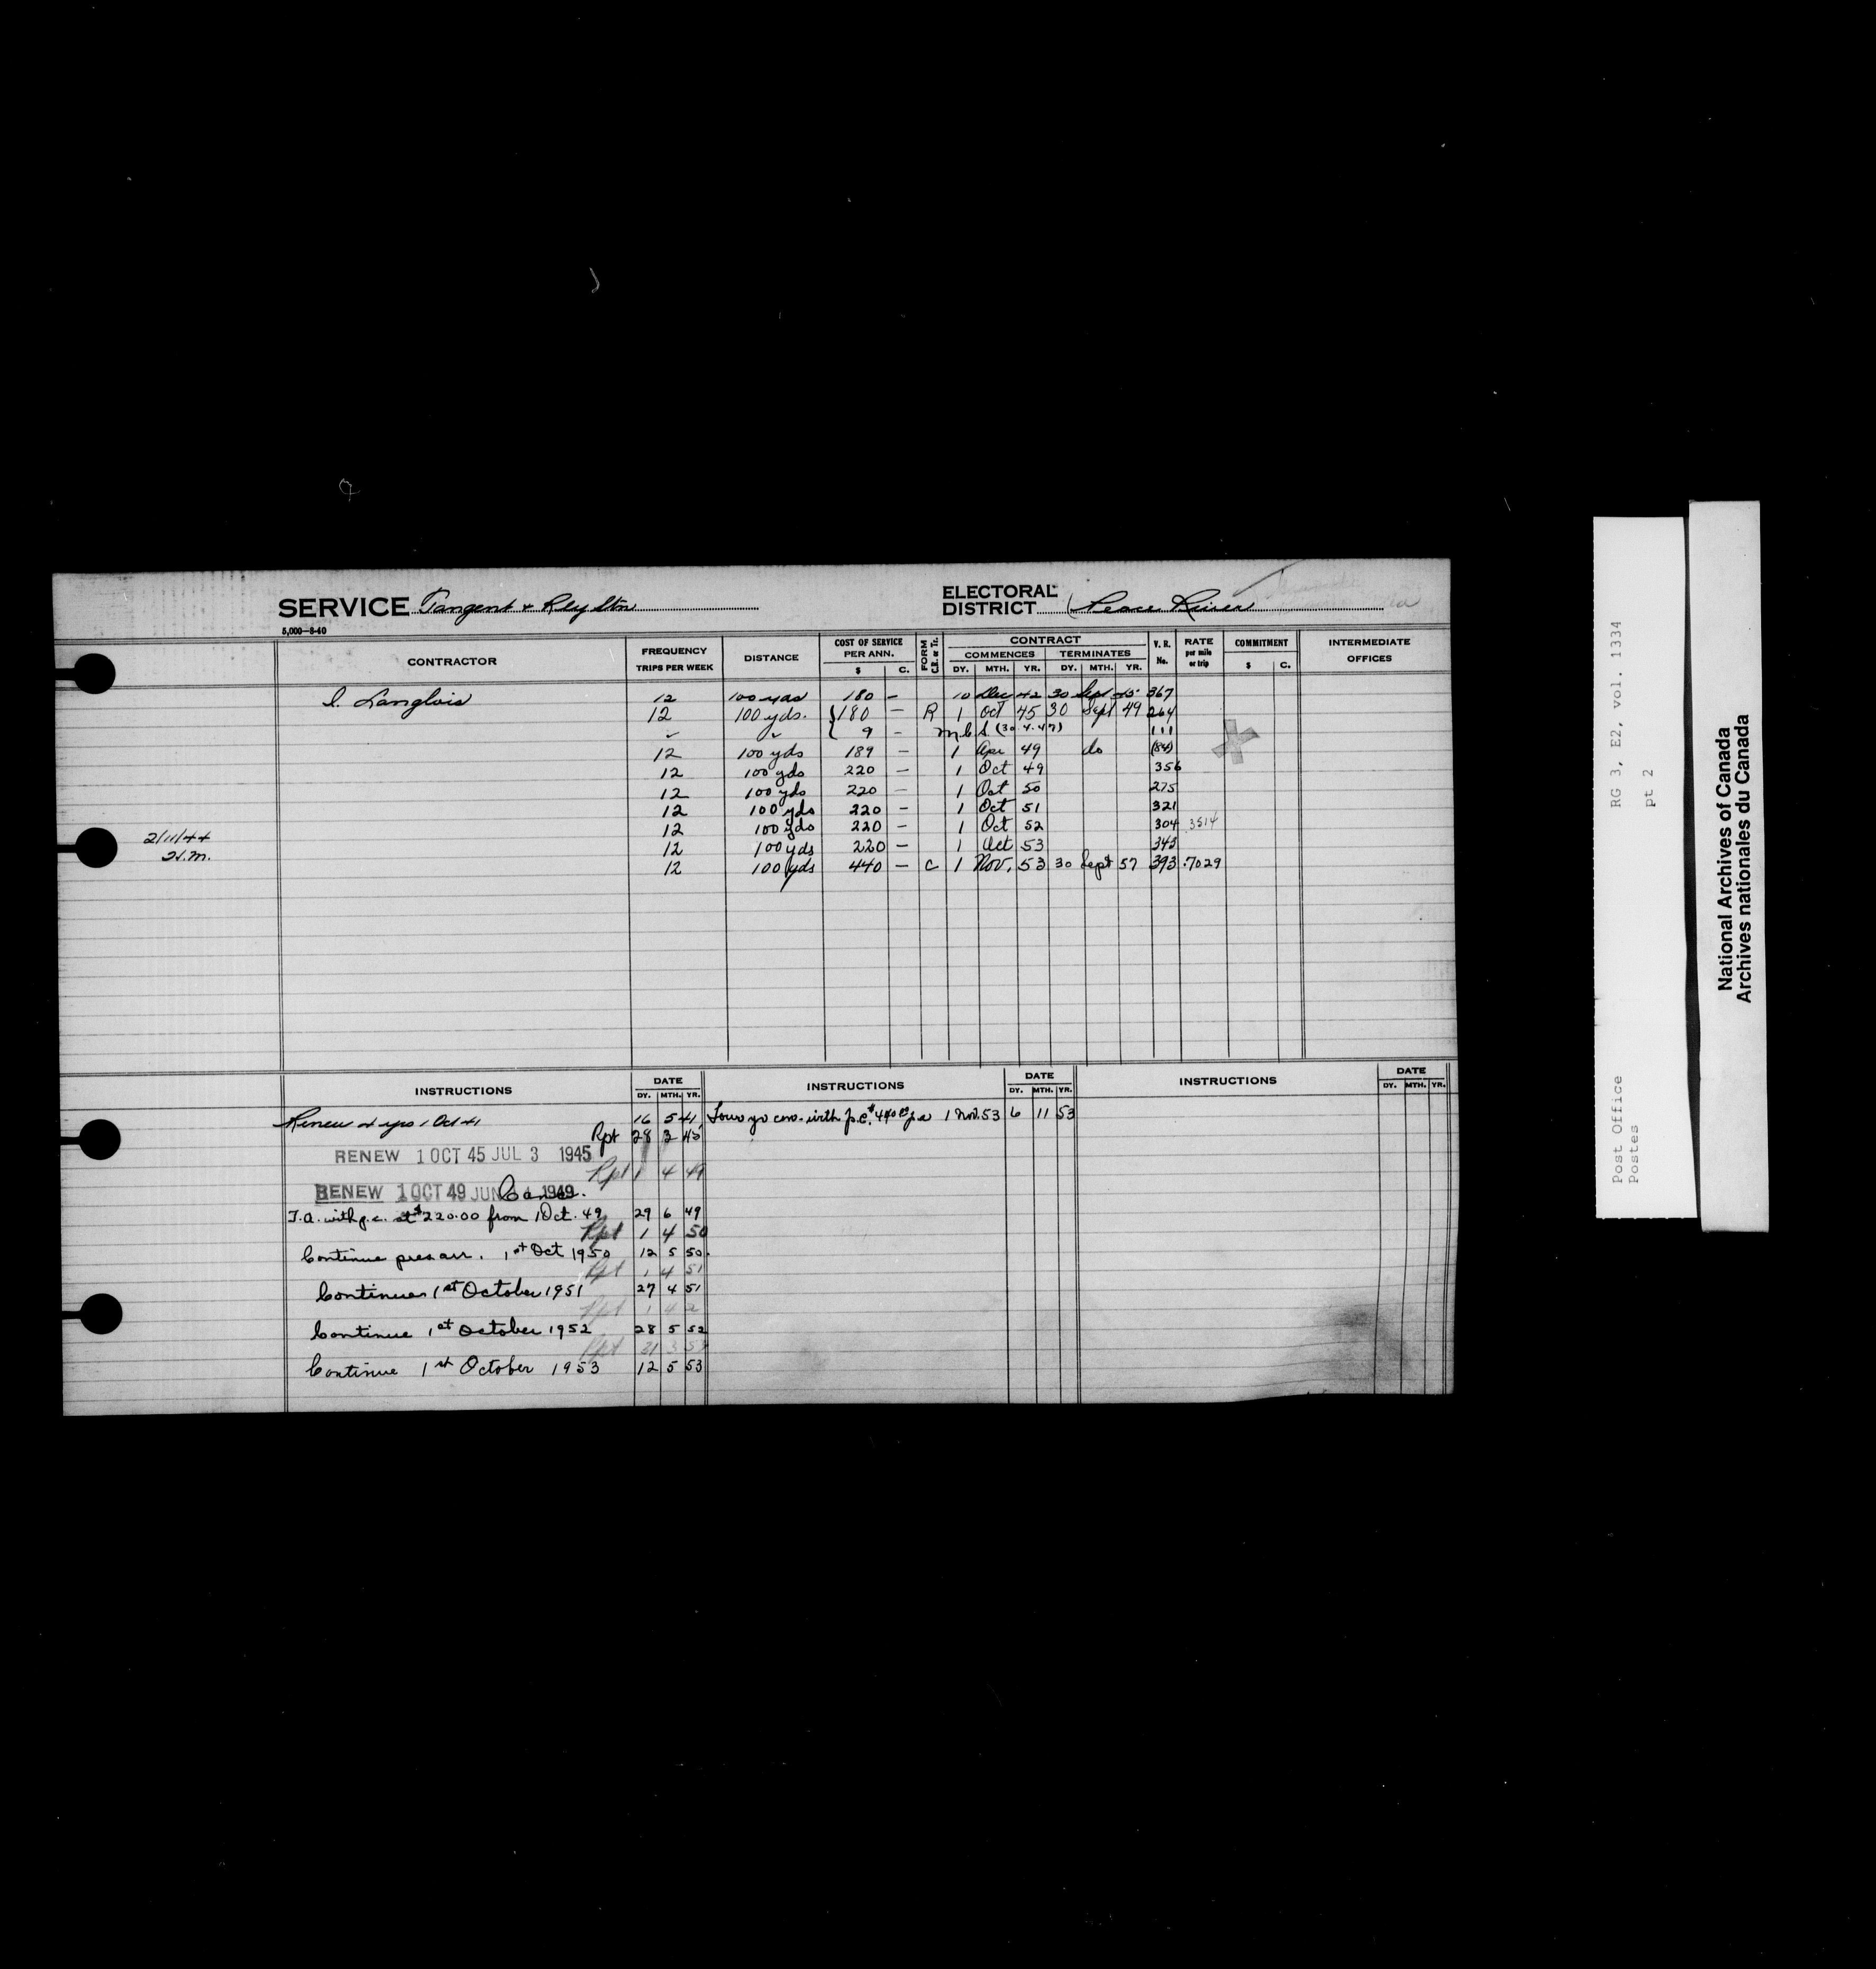 SERVICE Tangent & Rly Stn
ELECTORAL DISTRICT Peace River
5,000—8-40
CONTRACTOR FREQUENCY TRIPS PER WEEK DISTANCE COST OF SERVICE PER ANN. $ C. FORM C.R. or Tr. CONTRACT COMMENCES DY. MTH. YR. TERMINATES DY. MTH. YR. V. R. No. RATE per mile or trip COMMITMENT $ C. INTERMEDIATE OFFICES
I. Langlois 12 100 yds 180 — 10 Dec 42 30 Sept 45 367
12 100 yds. 180 — R 1 Oct 45 30 Sept 49 264
9 — M.C.S (30.4.47) 111
12 100 yds 189 — 1 Apr 49 do (84)
12 100 yds 220 — 1 Oct 49 356
12 100 yds 220 — 1 Oct 50 275
12 100 yds 220 — 1 Oct 51 321
12 100 yds 220 — 1 Oct 52 304 .3514
2/11/44
12 100 yds 220 — 1 Oct 53 343
H.M.
12 100 yds 440 — C 1 Nov. 53 30 Sept 57 393 .7029
INSTRUCTIONS DATE DY. MTH. YR. INSTRUCTIONS DATE DY. MTH. YR. INSTRUCTIONS DATE DY. MTH. YR.
Renew 4 yrs 1 Oct 41 16 5 41
Four yr con. with p.c. $440.00 p.a 1 Nov. 53 6 11 53
Rpt 28 3 45
RENEW 1 OCT 45 JUL 3 1945
Rpt 1 4 49
RENEW 1 OCT 49 JUN 1949 Canc.
T.A. with p.c. at $220.00 from 1 Oct. 49 29 6 49
Rpt 1 4 50
Continue pres arr. 1st Oct 1950 12 5 50.
Rpt 1 4 51
Continue 1st October 1951 27 4 51
Rpt 1 4 2
Continue 1st October 1952 28 5 52
Rpt 21 3 53
Continue 1st October 1953 12 5 53
Post Office RG 3, E2, vol. 1334
Postes pt 2
National Archives of Canada
Archives nationales du Canada